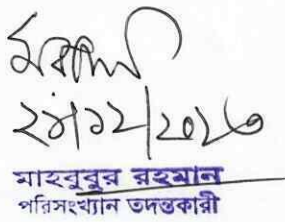 ২৪/১২/২০২৩
মাহবুবুর রহমান
পরিসংখ্যান তদন্তকারী